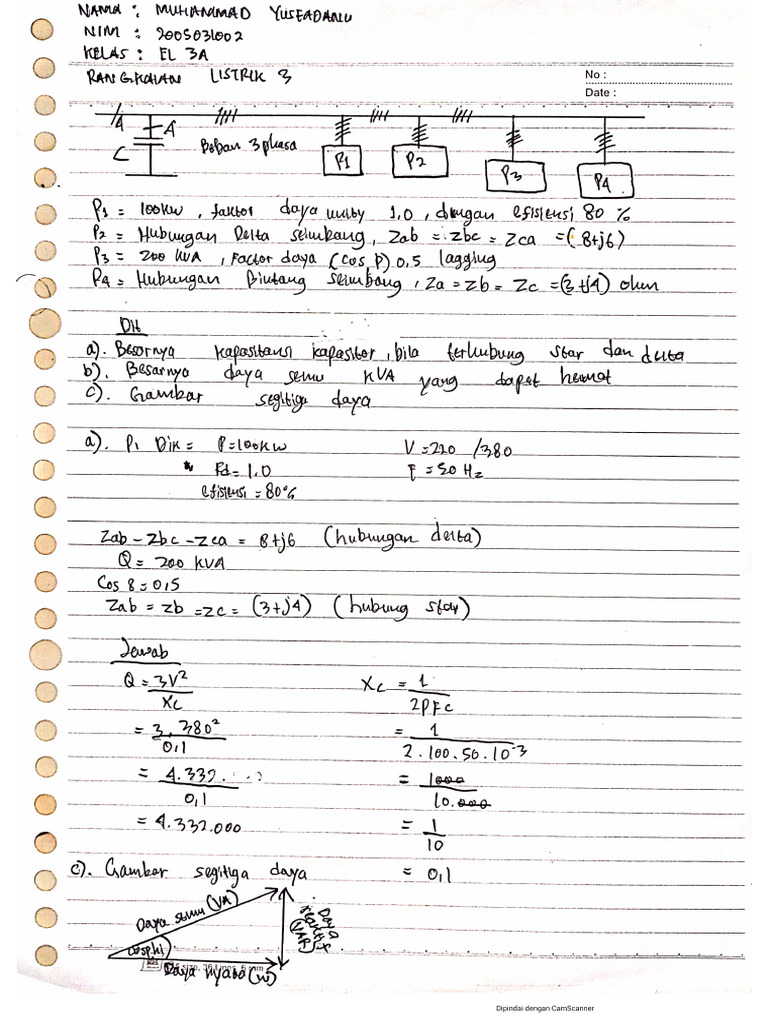 NAMA : MUHAMMAD YUSFADANU
NIM : 2005031002
KELAS : EL 3A
RANGKAIAN LISTRIK 3
No :
Date :
4
4
C
Beban 3 phasa
P1
P2
P3
P4
P1 = 100kw , faktor daya unity 1.0 , dengan efisiensi 80 %
P2 = Hubungan Delta seimbang, Zab = Zbc = Zca = (8+j6)
P3 = 200 KVA , Factor daya (cos P) 0,5 lagging
P4 = Hubungan Bintang seimbang , Za = Zb = Zc = (3+j4) ohm
Dit
a). Besarnya kapasitansi kapasitor , bila terhubung star dan delta
b). Besarnya daya semu KVA yang dapat hemat
c). Gambar segitiga daya
a). P1 Dik = P = 100kw V = 220 /380
Fd = 1.0 F = 50 Hz
efisiensi = 80%
Zab - Zbc - Zca = 8+j6 (hubungan delta)
Q = 200 KVA
Cos 8 = 0,5
Zab = Zb = Zc = (3+j4) (hubung star)
Jawab
Q = 3V²/XC XC = 1/2PFC
= 3.380²/0,1 = 1/2.100.50.10⁻³
= 4.332.../0,1 = 1000/10.000
= 4.332.000 = 1/10
c). Gambar segitiga daya = 0,1
Daya semu (VA)
Daya reaktif (VAR)
Cosphi
Daya nyata (W)
Dipindai dengan CamScanner